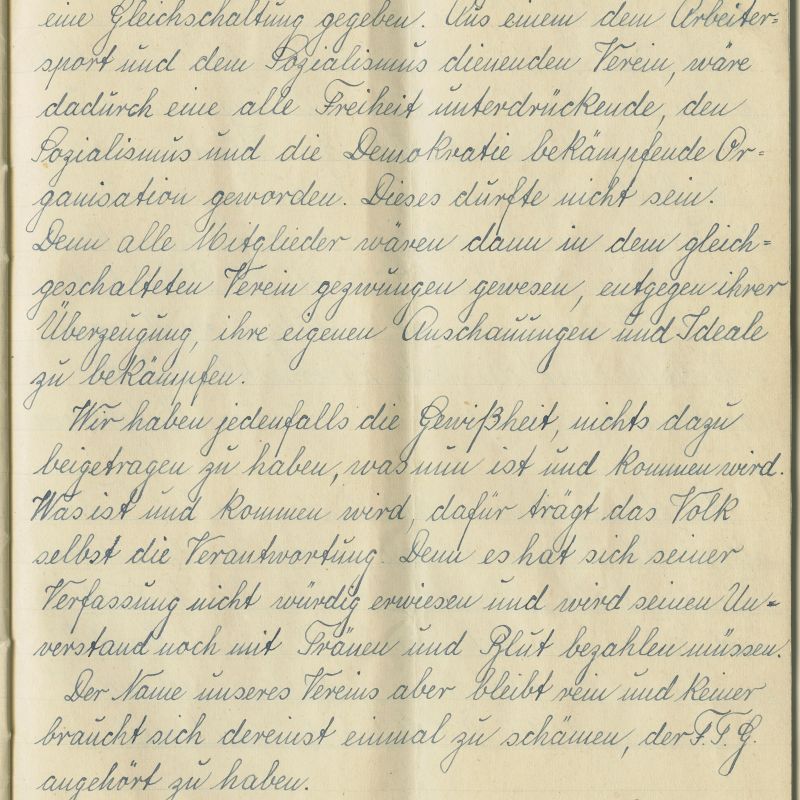 eine Gleichschaltung gegeben. Aus einem dem Arbeiter=
sport und dem Sozialismus dienenden Verein, wäre
dadurch eine alle Freiheit unterdrückende, den
Sozialismus und die Demokratie bekämpfende Or=
ganisation geworden. Dieses durfte nicht sein.
Denn alle Mitglieder wären dann in dem gleich=
geschalteten Verein gezwungen gewesen, entgegen ihrer
Überzeugung, ihre eigenen Anschauungen und Ideale
zu bekämpfen.
Wir haben jedenfalls die Gewißheit, nichts dazu
beigetragen zu haben, was nun ist und kommen wird.
Was ist und kommen wird, dafür trägt das Volk
selbst die Verantwortung. Denn es hat sich seiner
Verfassung nicht würdig erwiesen und wird seinen Un=
verstand noch mit Tränen und Blut bezahlen müssen.
Der Name unseres Vereins aber bleibt rein und keiner
braucht sich dereinst einmal zu schämen, der F.T.G.
angehört zu haben.